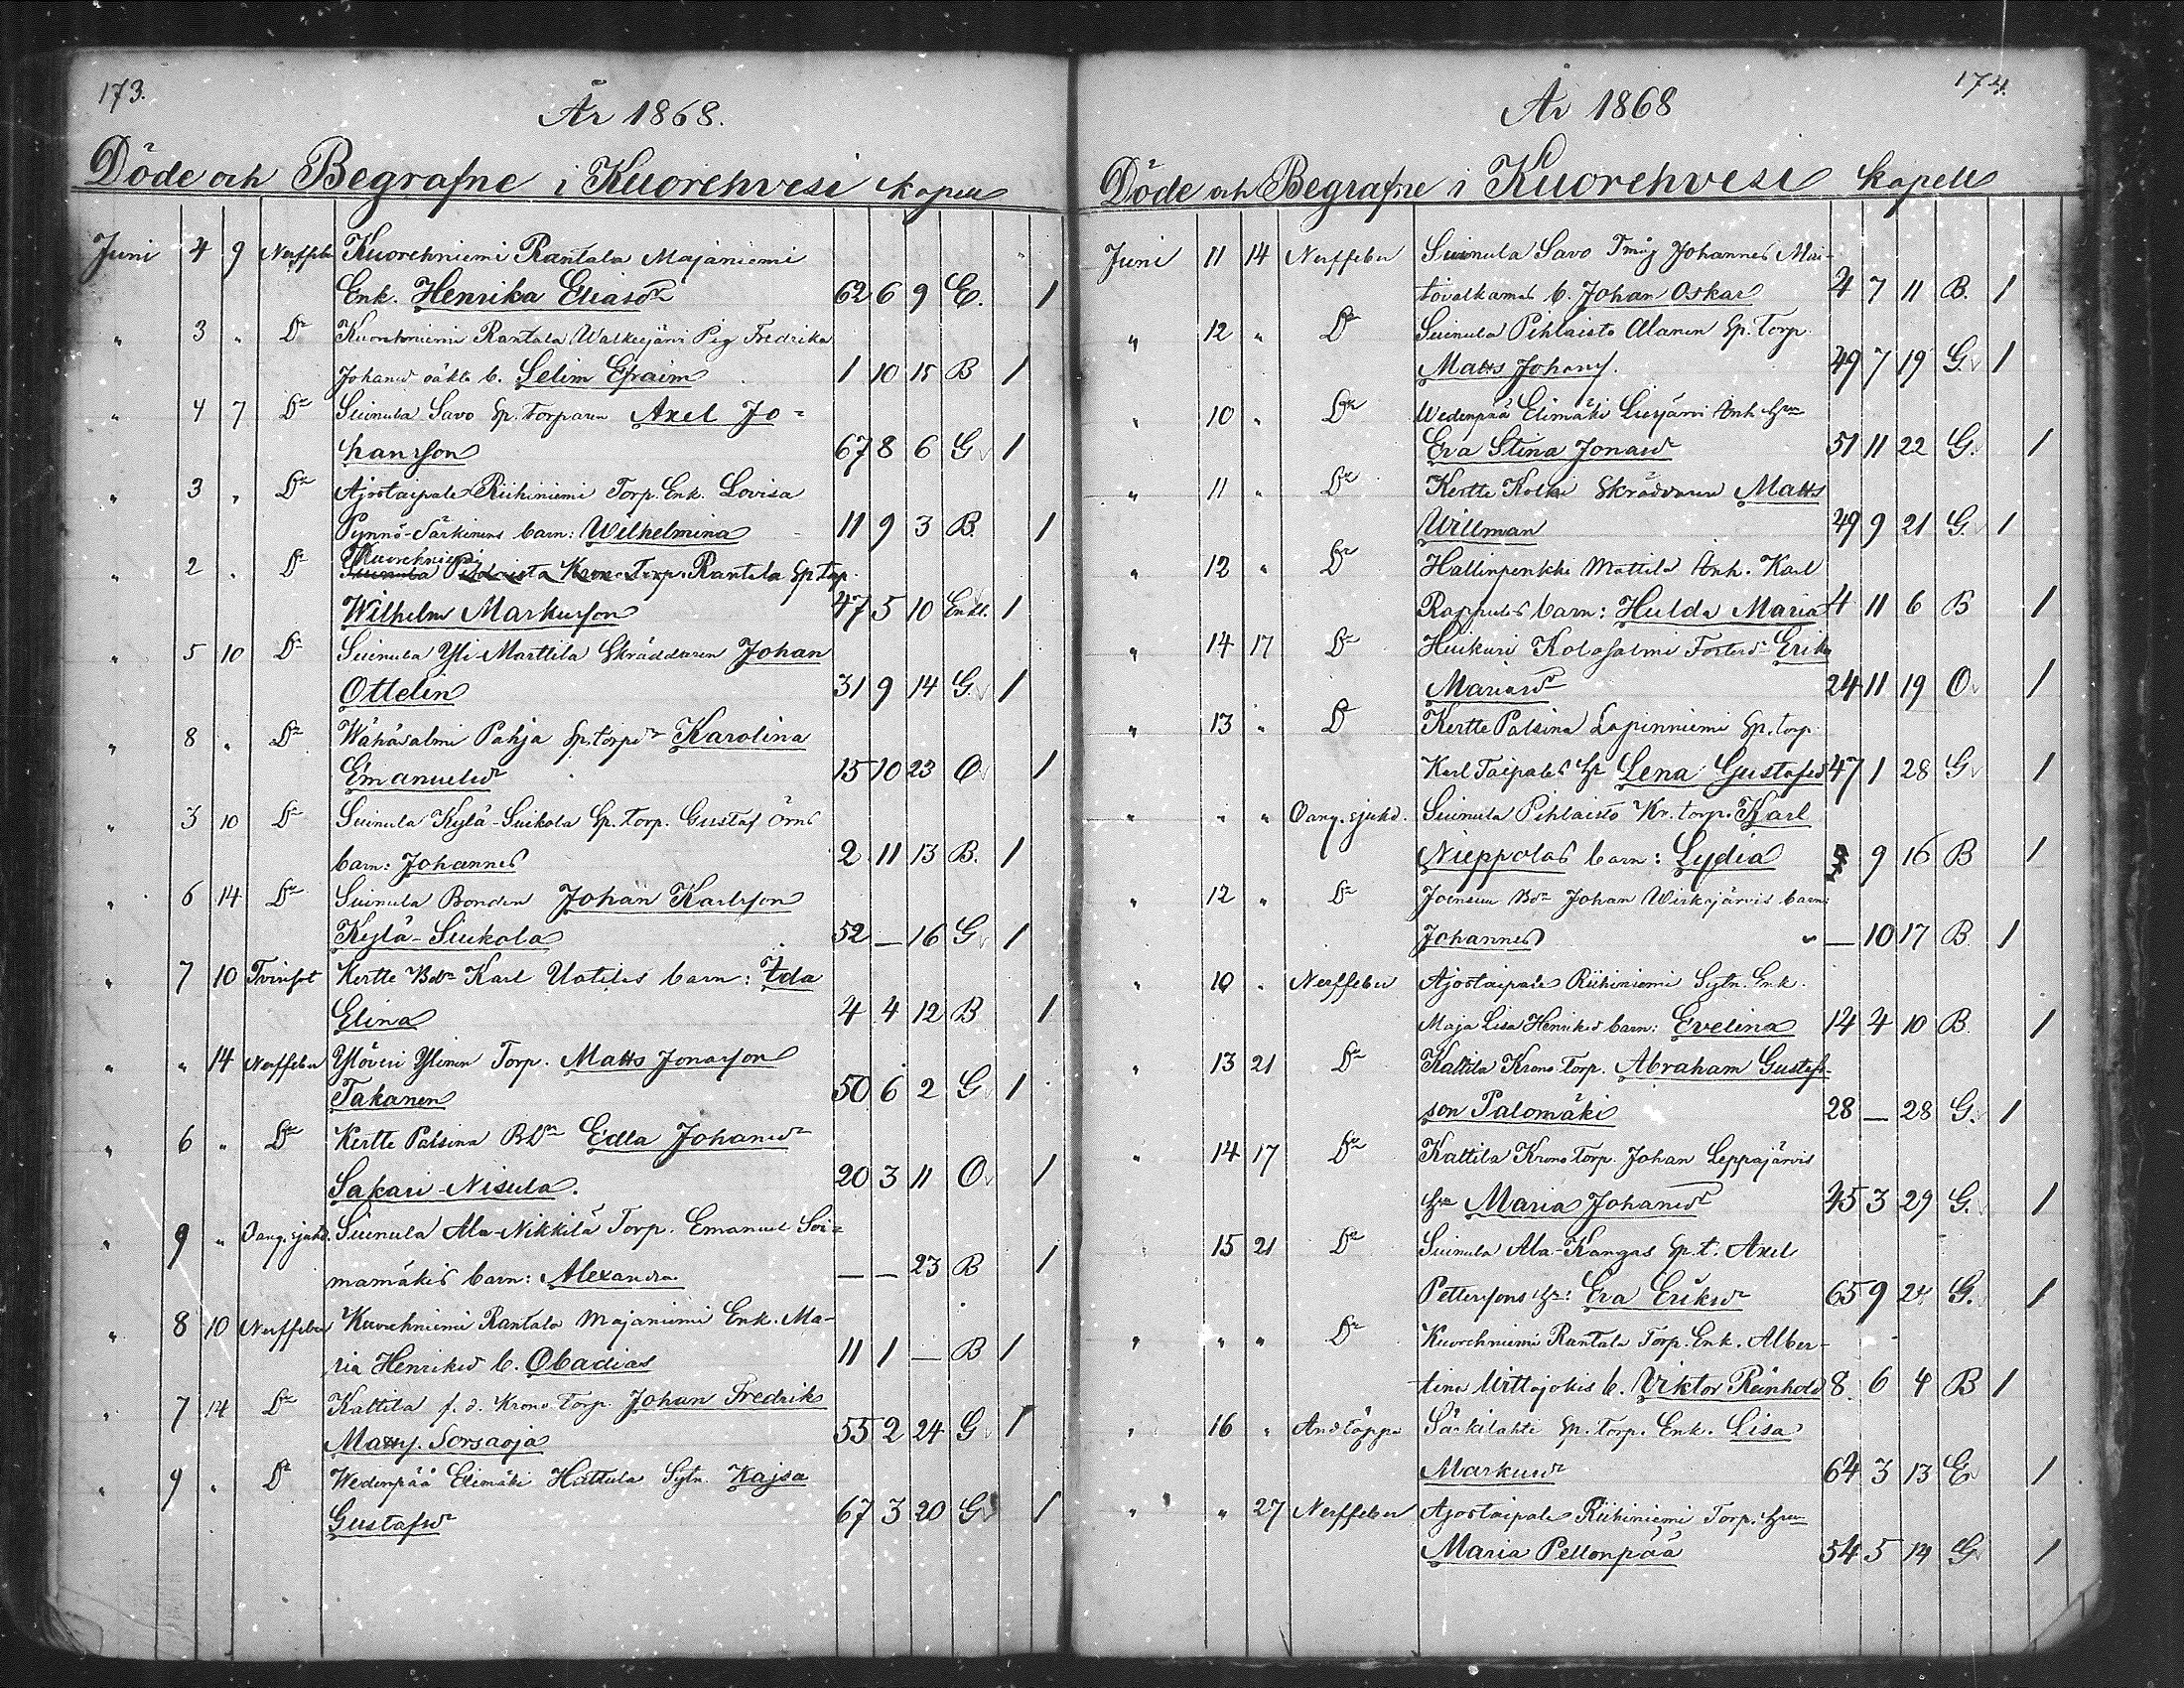 173.
År 1868.
Döde och Begrafne i Kuorehvesi kapell
Juni 4 9 Nerffeber Kuorehniemi Rantala Majaniemi
Enk. Henrika Eliasdr 62 6 9 E. 1
" 3 " Do Kuorehniemi Rantala Walkeejärvi Pig Fredrika
Johansd oäkta b. Selim Efraim 1 10 15 B 1
" 4 7 Do Suinula Savo Sp. torparen Axel Jo-
hansson 67 8 6 G 1
" 3 " Do Ajostaipale Riihiniemi Torp. Enk. Lovisa
Pynnö-Särkinens barn: Wilhelmina 11 9 3 B. 1
" 2 " Do Kuorehniemi Rantala Sp. torp.
Wilhelm Markusson 47 5 10 Enkl. 1
" 5 10 Do Suinula Yli-Marttila Skräddaren Johan
Ottelin 31 9 14 G. 1
" 8 " Do Wähäsalmi Pahja Sp. torpdr Karolina
Emanuelsdr 15 10 23 O 1
" 3 10 Do Suinula Kylä-Suikola Sp. torp. Gustaf Örns
barn: Johannes 2 11 13 B. 1
" 6 14 Do Suinula Bonden Johan Karlsson
Kylä-Siukola 52 — 16 G 1
" 7 10 Tvinsot Kertte Bdn Karl Uotilas barn: Ida
Elina 4 4 12 B 1
" " 14 Nerffeber Ylöveri Ylinen Torp. Matts Jonasson
Takanen 50 6 2 G 1
" 6 " Do Kertte Palsina Bdr Edla Johansdr
Sakari-Nisula. 20 3 11 O 1
" 9 " Oang. sjukd. Suinula Ala-Nikkilä Torp. Emanuel Soi-
mamäkis barn: Alexandra — — 23 B 1
" 8 10 Nerffeber Kuorehniemi Rantala Majaniemi Enk. Ma-
ria Henriksd b. Obadias 11 1 — B 1
" 7 14 Do Kattila f. d. Krono Torp. Johan Fredrik
Matts. Sorsaoja 55 2 24 G 1
" 9 " Do Wedenpää Elimäki Huttula Sytn. Kajsa
Gustafsdr 67 3 20 G 1
174.
År 1868
Döde och Begrafne i Kuorehvesi kapell
Juni 11 14 Nerffeber Suinula Savo Tmg Johannes
b. Johan Oskar 4 7 11 B. 1
" 12 " Do Suinula Pihlaisto Alanen Sp. Torp.
Matts Johans. 49 7 19 G. 1
" 10 " Do Wedenpää Elimäki Inh. Hru
Eva Stina Jonasdr 51 11 22 G. 1
" 11 " Do Kertte Kolki Skräddaren Matts
Willman 49 9 21 G. 1
" 12 " Do Hallinpenkki Mattila Inh. Karl
barn: Hulda Maria 4 11 6 B 1
" 14 17 Do Huikuri Kolosalmi Fosterdr Erika
Mariasdr 24 11 19 O 1
" 13 " Do Kertte Palsina Lapinniemi Sp. torp.
Karl Taipales Hr Lena Gustafsd 47 1 28 G 1
" " " Oang. sjukd. Suinula Pihlaisto Kr. torp. Karl
Nieppolas barn: Lydia 9 16 B 1
" 12 " Do Joensuu Bdn Johan Wirkajärvis barn:
Johannes " — 10 17 B 1
" 10 " Nerffeber Ajostaipale Riihiniemi Sytn. Enk.
Maja Lisa Henriksd barn: Evelina 14 4 10 B. 1
" 13 21 Do Kattila Krono Torp. Abraham Gustafs-
son Palomäki 28 — 28 G. 1
" 14 17 Do Kattila Krono Torp. Johan Leppäjärvis
Hru Maria Johansdr 45 3 29 G. 1
" 15 21 Do Suinula Ala-Kangas Sp. t. Axel
Petterssons Hr: Eva Eriksdr 65 9 24 G. 1
" " " Do Kuorehniemi Rantala Torp. Enk. Alber-
tina Mittajokis b. Viktor Reinhold 8 6 4 B 1
" 16 " Andtäppa Särkilahti Sp. Torp. Enk. Lisa
Markusdr 64 3 13 E 1
" " 27 Nerffeber Ajostaipale Riihiniemi Torp. Hru
Maria Pellonpää 54 5 14 G 1